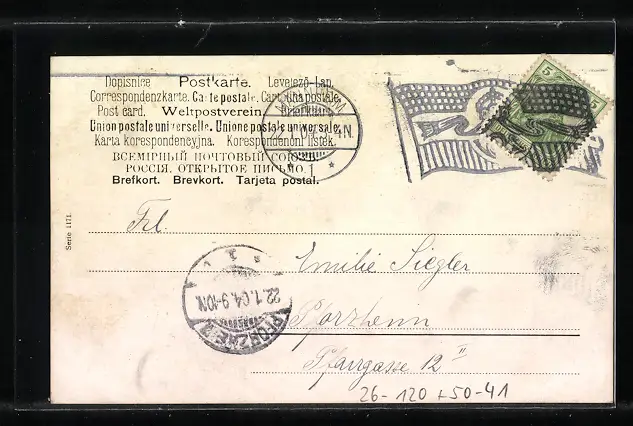 Dopisnice Postkarte. Levelező-Lap.
Correspondenzkarte. Carte postale. Cartolina postale.
Post card. Weltpostverein. Briefkaart.
Union postale universelle. Unione postale universale.
Karta korespondencyjna. Korespondenčni listek.
ВСЕМІРНЫЙ ПОЧТОВЫЙ СОЮЗ
РОССІЯ. ОТКРЫТОЕ ПИСЬМО.
Brefkort. Brevkort. Tarjeta postal.
5
5
Serie 1171.
Frl.
Emilie Siegler
Pforzheim
Pfarrgasse 12 II
PFORZHEIM
22.1.04.9-10N.
26-120 +50-41